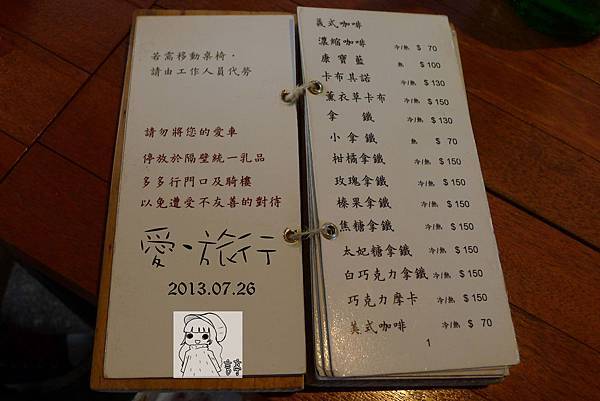 若需移動桌椅，
請由工作人員代勞
請勿將您的愛車
停放於隔壁統一乳品
多多行門口及騎樓
以免遭受不友善的對待
愛、旅行
2013.07.26
義式咖啡
濃縮咖啡 冷/熱 $ 70
康寶藍 熱 $ 100
卡布其諾 冷/熱 $ 130
薰衣草卡布 冷/熱 $ 150
拿鐵 冷/熱 $ 130
小拿鐵 熱 $ 70
柑橘拿鐵 冷/熱 $ 150
玫瑰拿鐵 冷/熱 $ 150
榛果拿鐵 冷/熱 $ 150
焦糖拿鐵 冷/熱 $ 150
太妃糖拿鐵 冷/熱 $ 150
白巧克力拿鐵 冷/熱 $ 150
巧克力摩卡 冷/熱 $ 150
美式咖啡 冷/熱 $ 70
1